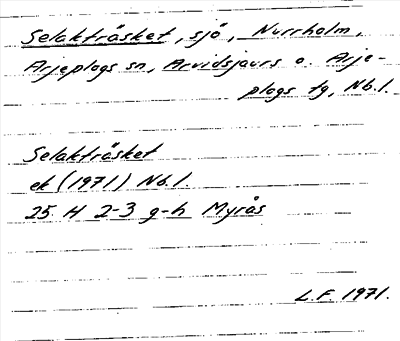 Selakträsket, sjö, Nurrholm,
Arjeplogs sn, Arvidsjaurs o. Arje-
plogs tg, Nb.l.
Selakträsket
ek (1971) Nb.l.
25. H 2-3 g-h Myrås
L.F. 1971.